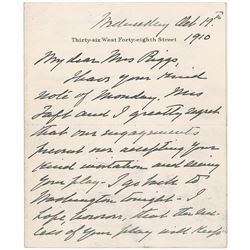 Wednesday Oct 19th
1910
Thirty-six West Forty-eighth Street
My dear Mrs Riggs,
I have your kind
note of Monday. Mrs
Taft and I greatly regret
that our engagements
prevent our accepting your
kind invitation and seeing
your play. I go back to
Washington tonight. I
hope, however, that the suc-
cess of your play will keep